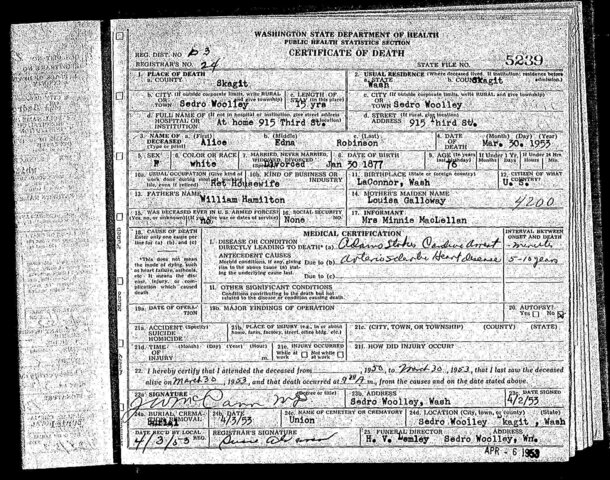 WASHINGTON STATE DEPARTMENT OF HEALTH
PUBLIC HEALTH STATISTICS SECTION
CERTIFICATE OF DEATH
REG. DIST. NO. 3
REGISTRAR'S NO. 24
STATE FILE NO. 5239
1. PLACE OF DEATH
a. COUNTY Skagit
2. USUAL RESIDENCE (Where deceased lived. If institution: residence before admission)
a. STATE Wash b. COUNTY Skagit
b. CITY (If outside corporate limits, write RURAL and give township) OR TOWN Sedro Woolley
c. LENGTH OF STAY (in this place) 15 yrs
c. CITY (If outside corporate limits, write RURAL and give township) OR TOWN Sedro Woolley
d. FULL NAME OF (If not in hospital or institution, give street address) HOSPITAL OR INSTITUTION At home 915 Third St.
d. STREET ADDRESS (If rural, give location) 915 Third St.
3. NAME OF DECEASED a. (First) Alice b. (Middle) Edna c. (Last) Robinson
4. DATE OF DEATH (Month) (Day) (Year) Mar. 30, 1953
5. SEX F
6. COLOR OR RACE White
7. MARRIED, NEVER MARRIED, WIDOWED, DIVORCED Divorced
8. DATE OF BIRTH Jan 30 1877
9. AGE 76 If Under 1 Yr. If Under 24 Hrs.
10a. USUAL OCCUPATION (Give kind of work done during most of working life, even if retired) Ret Housewife
10b. KIND OF BUSINESS OR INDUSTRY
11. BIRTHPLACE (State or foreign country) LaConnor, Wash
12. CITIZEN OF WHAT COUNTRY? U. S.
13. FATHER'S NAME William Hamilton
14. MOTHER'S MAIDEN NAME Louisa Galloway
4200
15. WAS DECEASED EVER IN U. S. ARMED FORCES? no
16. SOCIAL SECURITY NO. None
17. INFORMANT Mrs Minnie MacLellan
18. CAUSE OF DEATH
Enter only one cause per line for (a), (b), and (c)
*This does not mean the mode of dying, such as heart failure, asthenia, etc. It means the disease, injury, or complication which caused death
MEDICAL CERTIFICATION
INTERVAL BETWEEN ONSET AND DEATH
I. DISEASE OR CONDITION DIRECTLY LEADING TO DEATH* (a) Adams Stokes Cardiac Arrest - minutes
ANTECEDENT CAUSES
Morbid conditions, if any, giving rise to the above cause (a) stating the underlying cause last.
Due to (b) Arteriosclerotic Heart Disease 5-10 years
Due to (c)
II. OTHER SIGNIFICANT CONDITIONS
Conditions contributing to the death but not related to the disease or condition causing death.
19a. DATE OF OPERATION
19b. MAJOR FINDINGS OF OPERATION
20. AUTOPSY? Yes No
21a. ACCIDENT (Specify) SUICIDE HOMICIDE
21b. PLACE OF INJURY (e.g., in or about home, farm, factory, street, office bldg., etc.)
21c. (CITY, TOWN, OR TOWNSHIP) (COUNTY) (STATE)
21d. TIME OF INJURY (Month) (Day) (Year) (Hour) m.
21e. INJURY OCCURRED While at work Not while at work
21f. HOW DID INJURY OCCUR?
22. I hereby certify that I attended the deceased from 1950, to March 30, 1953, that I last saw the deceased
alive on March 30, 1953, and that death occurred at m., from the causes and on the date stated above.
23a. SIGNATURE (Degree or title)
23b. ADDRESS Sedro Woolley, Wash
23c. DATE SIGNED 4/2/53
24a. BURIAL, CREMATION, REMOVAL Burial
24b. DATE 4/3/53
24c. NAME OF CEMETERY OR CREMATORY Union
24d. LOCATION (City, town, or county) (State) Sedro Woolley Skagit, Wash
DATE REC'D BY LOCAL REG. 4/3/53
REGISTRAR'S SIGNATURE
25. FUNERAL DIRECTOR ADDRESS H. V. Lemley Sedro Woolley, Wn.
APR - 6 1953